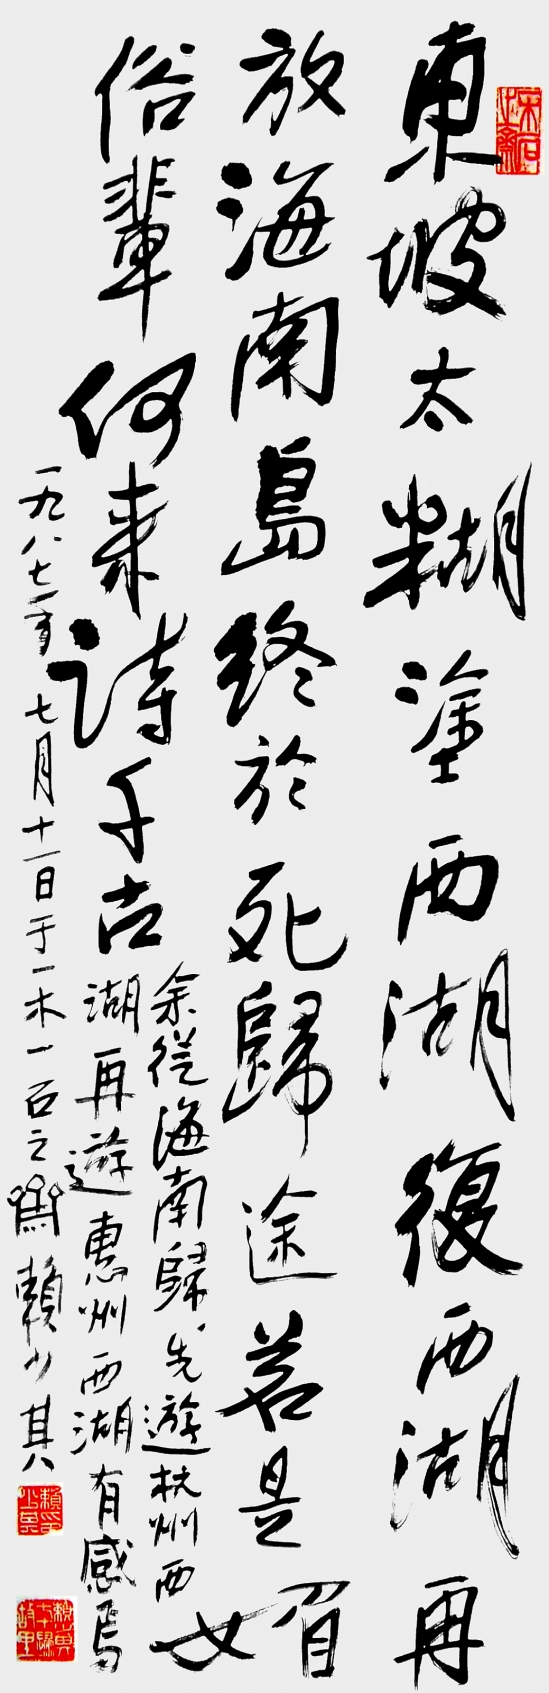 東坡太糊塗西湖復西湖再
放海南島終於死歸途若是媚
俗輩何来詩千古
余從海南歸先遊杭州西
湖再遊惠州西湖有感焉
一九八七年七月十一日于一木一石之齋賴少其